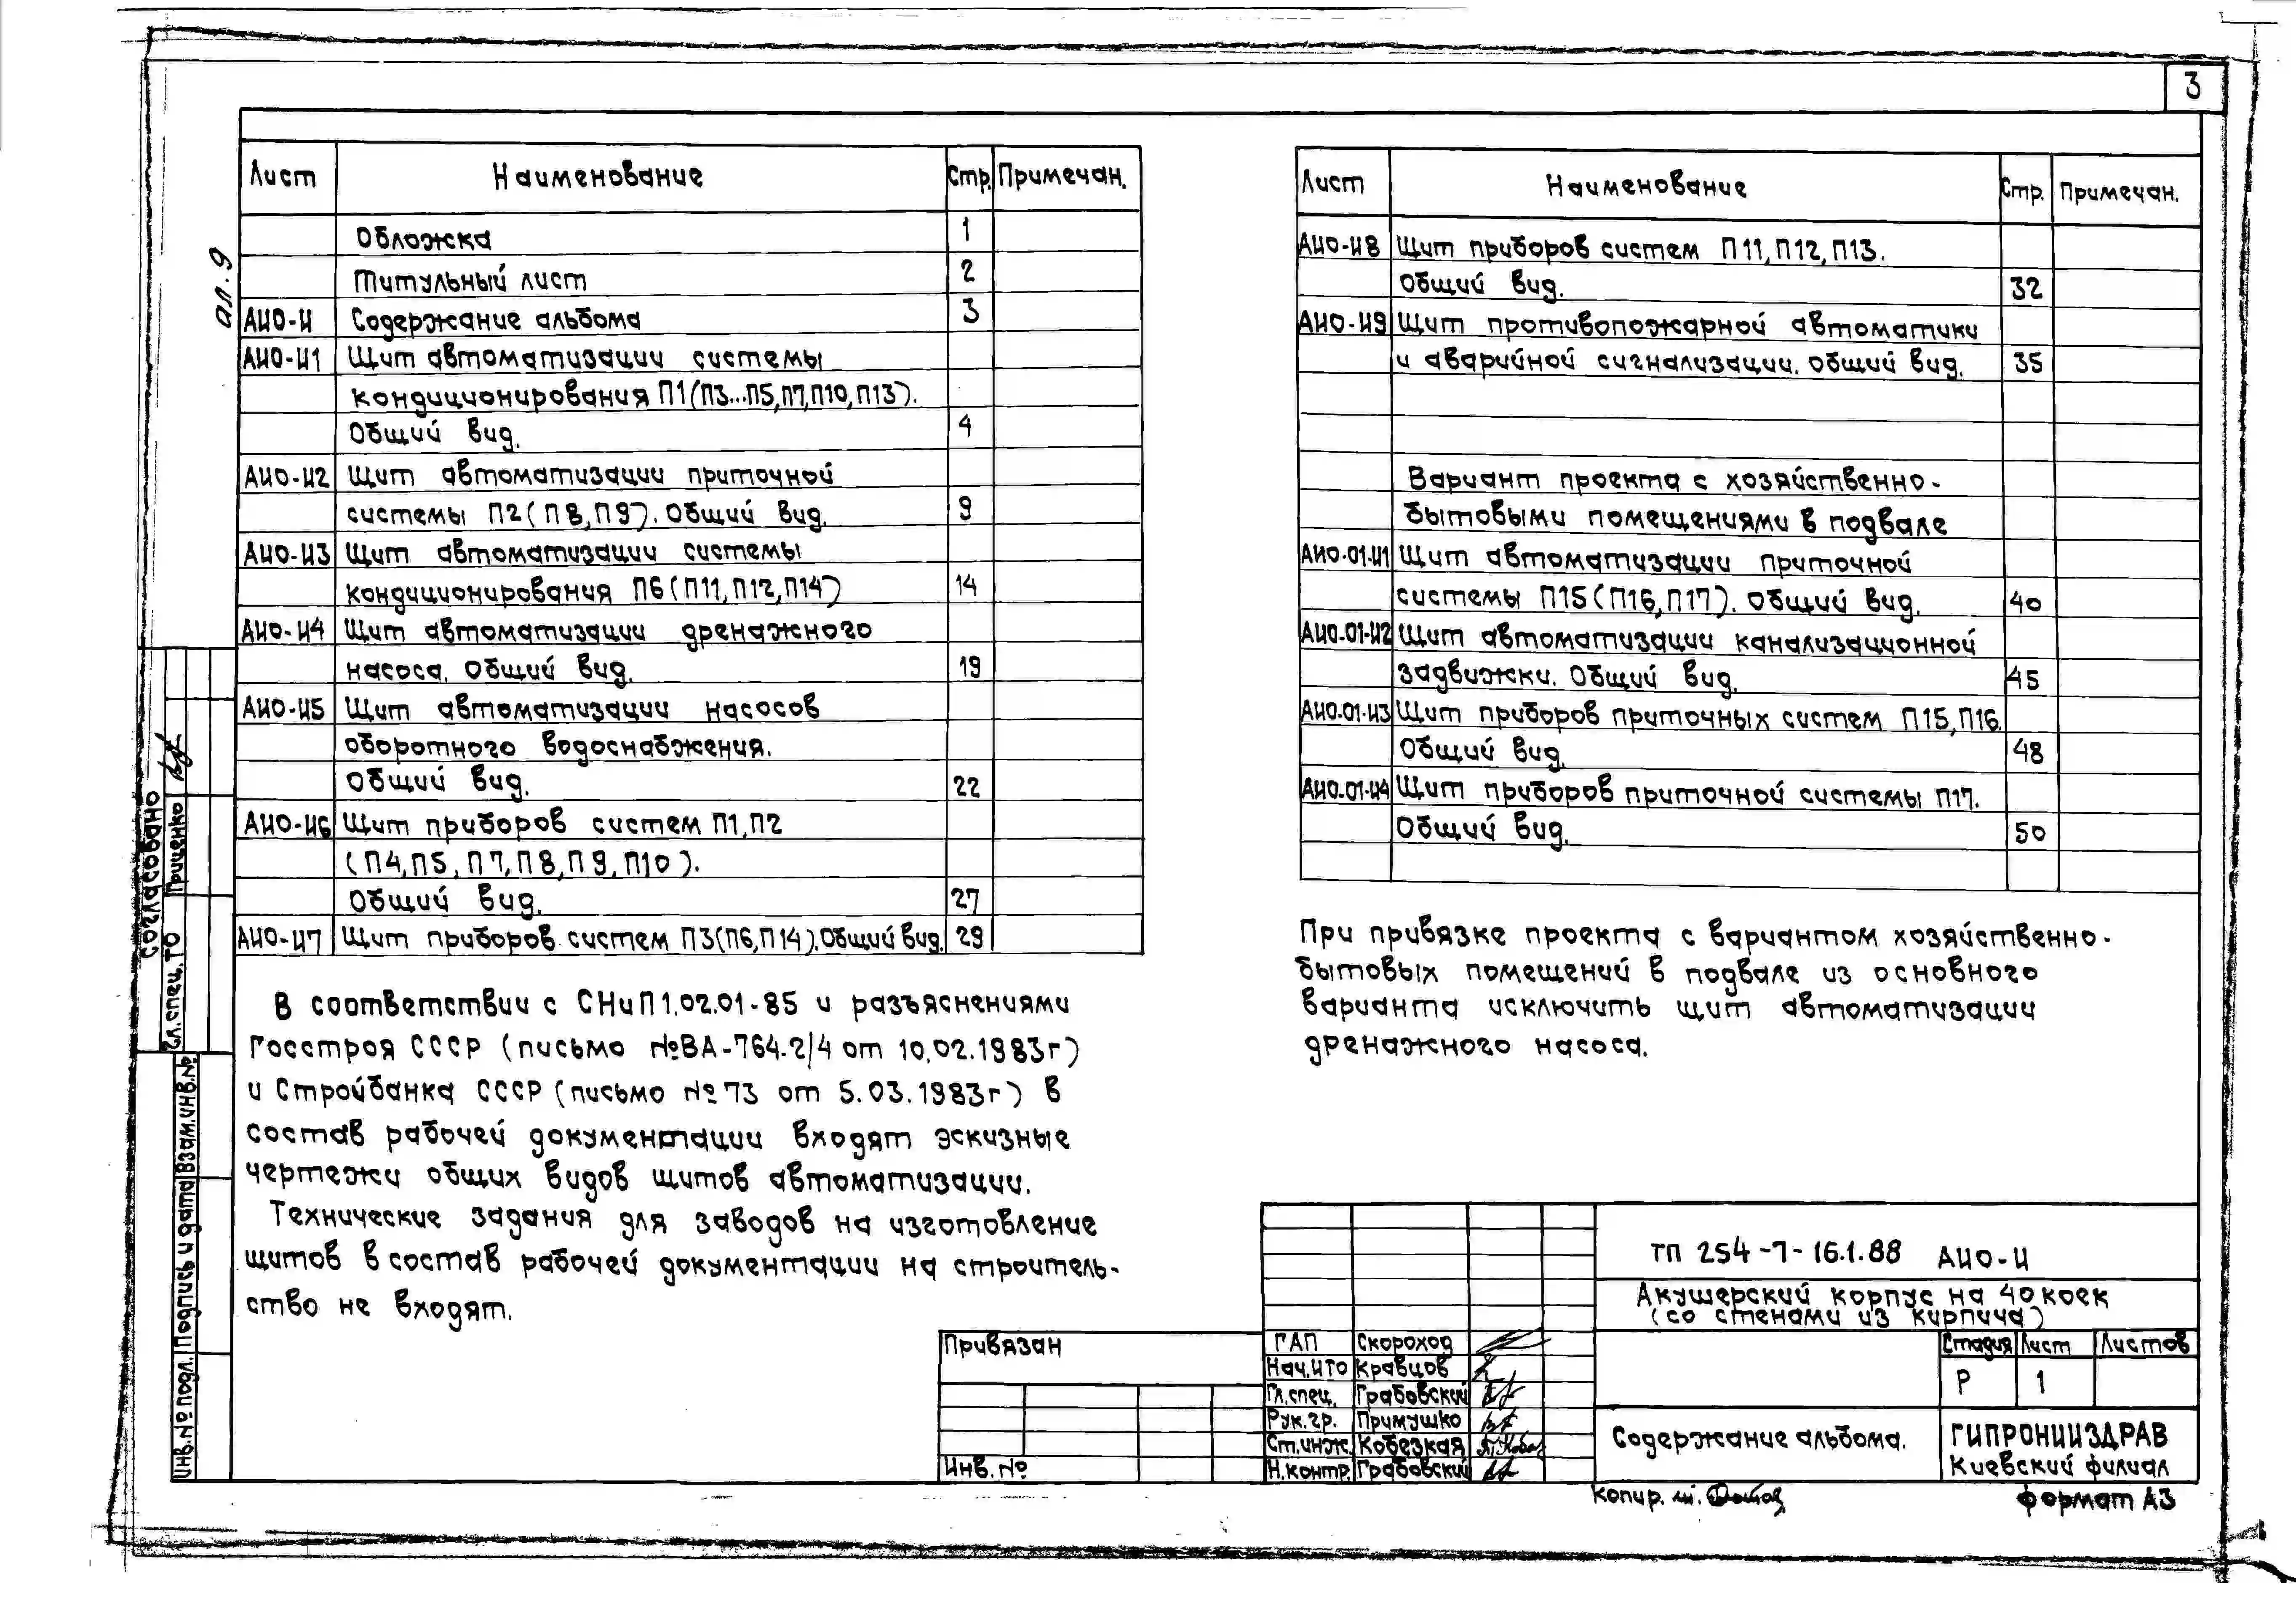 3
ал. 9
Лист Наименование Стр. Примечан.
Обложка 1
Титульный лист 2
АИО-И Содержание альбома 3
АИО-И1 Щит автоматизации системы
кондиционирования П1(П3...П5,П7,П10,П13).
Общий вид. 4
АИО-И2 Щит автоматизации приточной
системы П2(П8,П9). Общий вид. 9
АИО-И3 Щит автоматизации системы
кондиционирования П6(П11,П12,П14) 14
АИО-И4 Щит автоматизации дренажного
насоса. Общий вид. 19
АИО-И5 Щит автоматизации насосов
оборотного водоснабжения.
Общий вид. 22
АИО-И6 Щит приборов систем П1,П2
(П4,П5,П7,П8,П9,П10).
Общий вид. 27
АИО-И7 Щит приборов систем П3(П6,П14).Общий вид. 29
В соответствии с СНиП1.02.01-85 и разъяснениями
Госстроя СССР (письмо №ВА-764.2/4 от 10.02.1983г)
и Стройбанка СССР (письмо №73 от 5.03.1983г) в
состав рабочей документации входят эскизные
чертежи общих видов щитов автоматизации.
Технические задания для заводов на изготовление
щитов в состав рабочей документации на строитель-
ство не входят.
Лист Наименование Стр. Примечан.
АИО-И8 Щит приборов систем П11,П12,П13.
Общий вид. 32
АИО-И9 Щит противопожарной автоматики
и аварийной сигнализации. Общий вид. 35
Вариант проекта с хозяйственно-
бытовыми помещениями в подвале
АИО-01-И1 Щит автоматизации приточной
системы П15(П16,П17). Общий вид. 40
АИО-01-И2 Щит автоматизации канализационной
задвижки. Общий вид. 45
АИО-01-И3 Щит приборов приточных систем П15,П16.
Общий вид. 48
АИО-01-И4 Щит приборов приточной системы П17.
Общий вид. 50
При привязке проекта с вариантом хозяйственно-
бытовых помещений в подвале из основного
варианта исключить щит автоматизации
дренажного насоса.
Согласовано
Гл.спец. ТО Гриценко
Инв.№подл. Подпись и дата Взам.инв.№
Привязан
Инв.№
ГАП Скороход
Нач.ИТО Кравцов
Гл.спец. Грабовский
Рук.гр. Примушко
Ст.инж. Кобезкая
Н.контр. Грабовский
ТП 254-7-16.1.88 АИО-И
Акушерский корпус на 40 коек
(со стенами из кирпича)
Стадия Лист Листов
Р 1
Содержание альбома.
ГИПРОНИИЗДРАВ
Киевский филиал
Копир.
формат А3